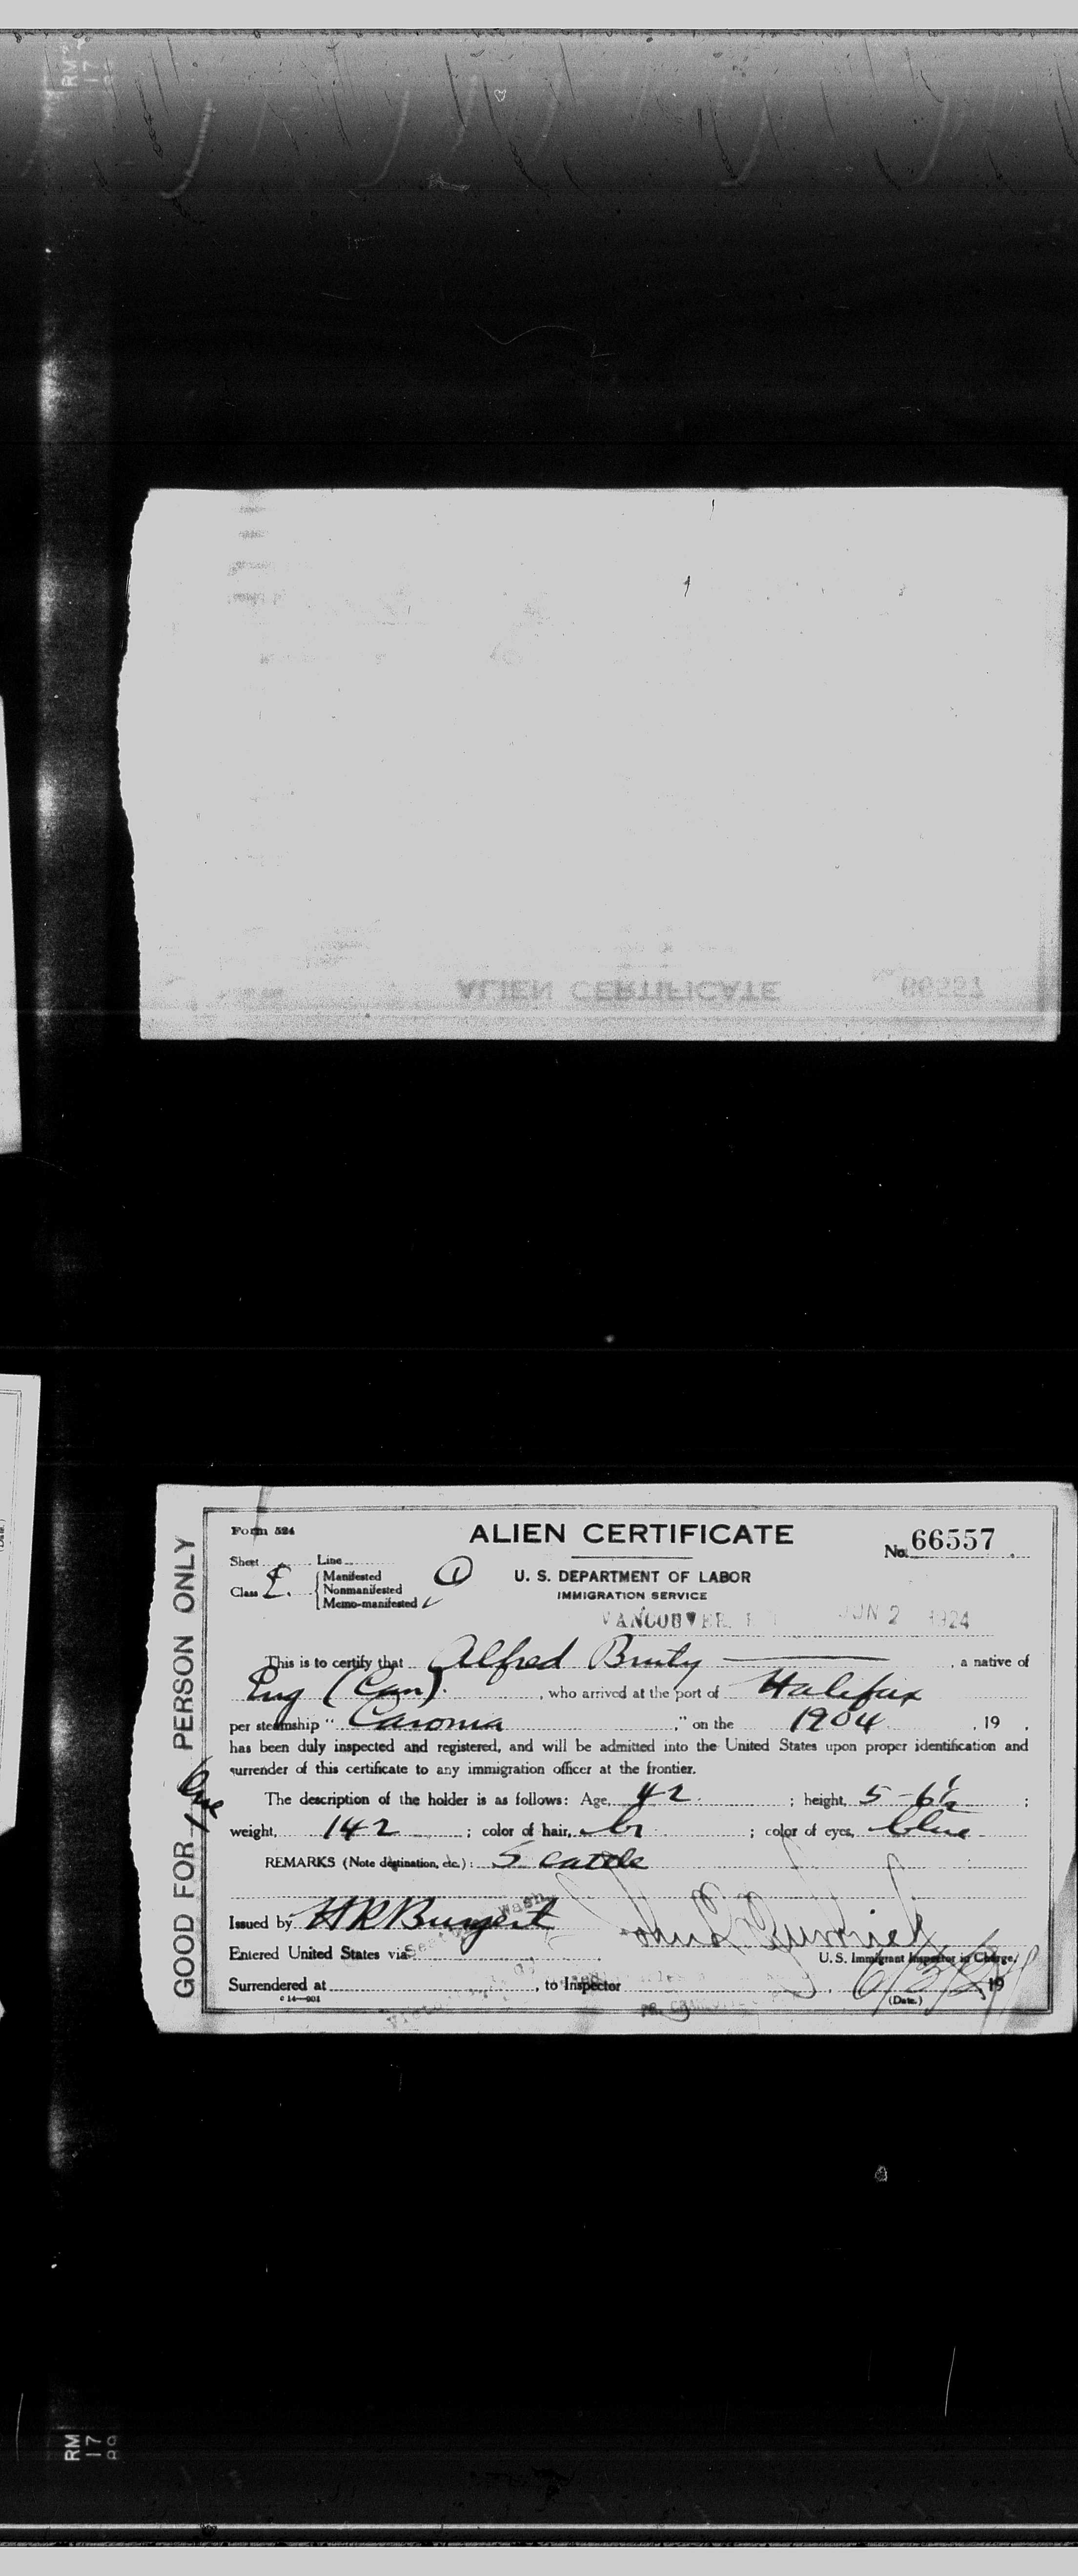 RM
17
ALIEN CERTIFICATE
66557
Form 524
ALIEN CERTIFICATE
No. 66557
Sheet Line
Class £. Manifested
Nonmanifested
Memo-manifested ✓
1
U. S. DEPARTMENT OF LABOR
IMMIGRATION SERVICE
VANCOUVER, JUN 2 1924
This is to certify that Alfred Bruty, a native of
Eng (Can), who arrived at the port of Halifax
per steamship "Caronia," on the 1904, 19 .
has been duly inspected and registered, and will be admitted into the United States upon proper identification and
surrender of this certificate to any immigration officer at the frontier.
The description of the holder is as follows: Age, 42; height, 5-6½;
weight, 142; color of hair, br; color of eyes, blue
REMARKS (Note destination, etc.): Seattle
Issued by HR Burgert
Entered United States via
U. S. Immigrant Inspector in Charge.
Surrendered at, to Inspector 19
(Date.)
GOOD FOR One 1 PERSON ONLY
RM
17